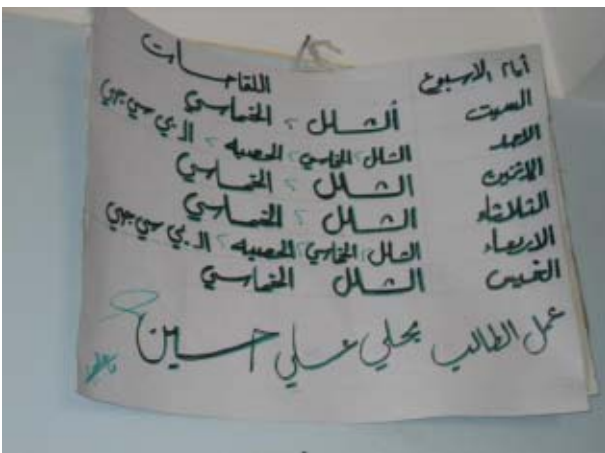 أيام الاسبوع اللقاحات
السبت الشلل ، الخماسي
الاحد الشلل ، الخماسي ، الحصبه ، ال بي سي جي
الاثنين الشلل ، الخماسي
الثلاثاء الشلل ، الخماسي
الاربعاء الشلل ، الخماسي ، الحصبه ، ال بي سي جي
الخميس الشلل الخماسي
عمل الطالب علي حسين